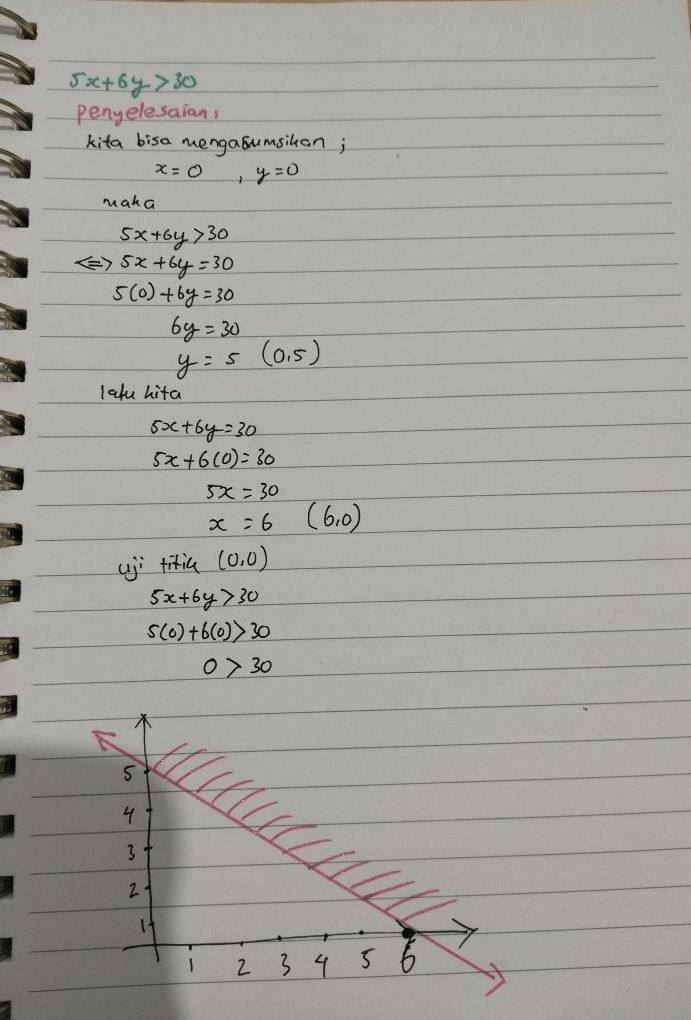 5x+6y>30
penyelesaian:
kita bisa mengasumsikan ;
x=0 , y=0
maka
5x+6y>30
<=> 5x+6y=30
5(0)+6y=30
6y=30
y = 5 (0,5)
lalu kita
5x+6y=30
5x+6(0)=30
5x=30
x = 6 (6,0)
uji titik (0,0)
5x+6y>30
5(0)+6(0)>30
0 > 30
5
4
3
2
1
1 2 3 4 5 6